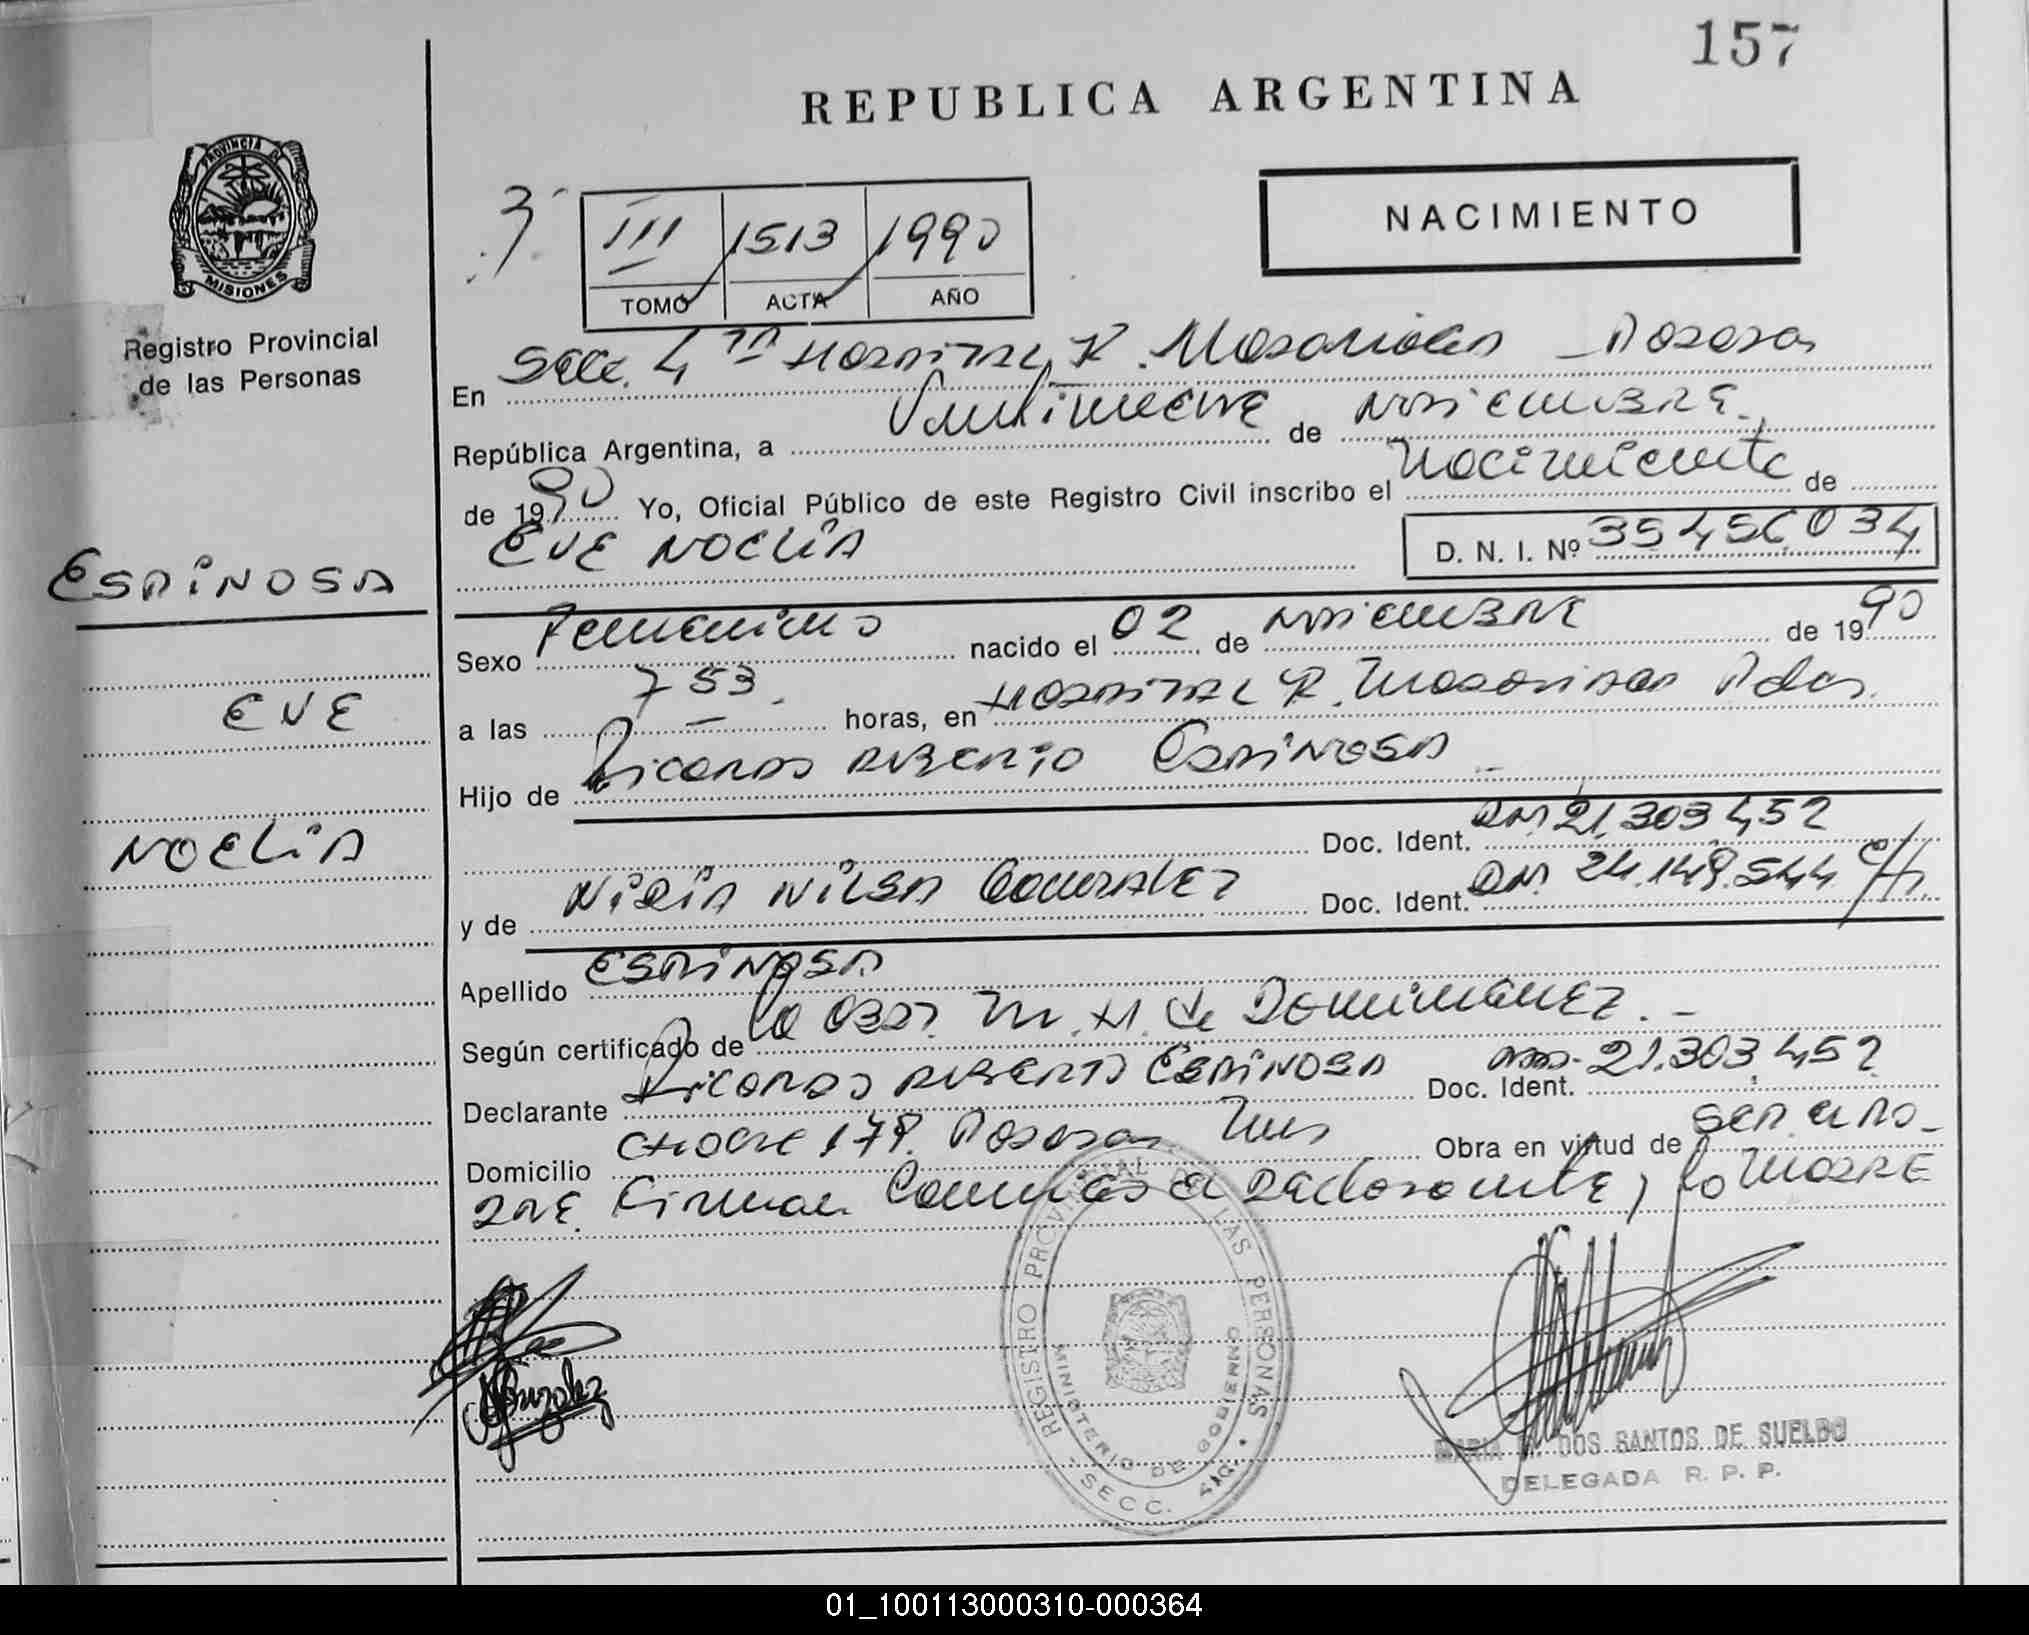 157
REPUBLICA ARGENTINA
PROVINCIA DE
MISIONES
Registro Provincial
de las Personas
NACIMIENTO
III 1513 1990
TOMO ACTA AÑO
En Secc. 4ta Hospital R. Madariaga - Posadas
República Argentina, a Veintinueve de Noviembre
de 1990 Yo, Oficial Público de este Registro Civil inscribo el Nacimiento de
EVE NOELIA D. N. I. Nº 35456034
ESPINOSA
EVE
NOELIA
Sexo Femenino nacido el 02 de Noviembre de 1990
a las 7 53 horas, en Hospital R. Madariaga Pdas.
Hijo de Ricardo Alberto Espinosa
Doc. Ident. DNI 21.303.452
y de Nidia Nilsa Gonzalez Doc. Ident. DNI. 24.149.544
Apellido ESPINOSA
Según certificado de la Obst. M. H. de Dominguez.-
Declarante Ricardo Alberto Espinosa Doc. Ident. 21.303.452
Domicilio 178 Posadas Mnes Obra en virtud de ser el pa-
dre. Firman Conmigo el declarante y la madre
REGISTRO PROVINCIAL DE LAS PERSONAS
MINISTERIO DE GOBIERNO
SECC. 4
MARIA DOS SANTOS DE SUELDO
DELEGADA R. P. P.
01_100113000310-000364